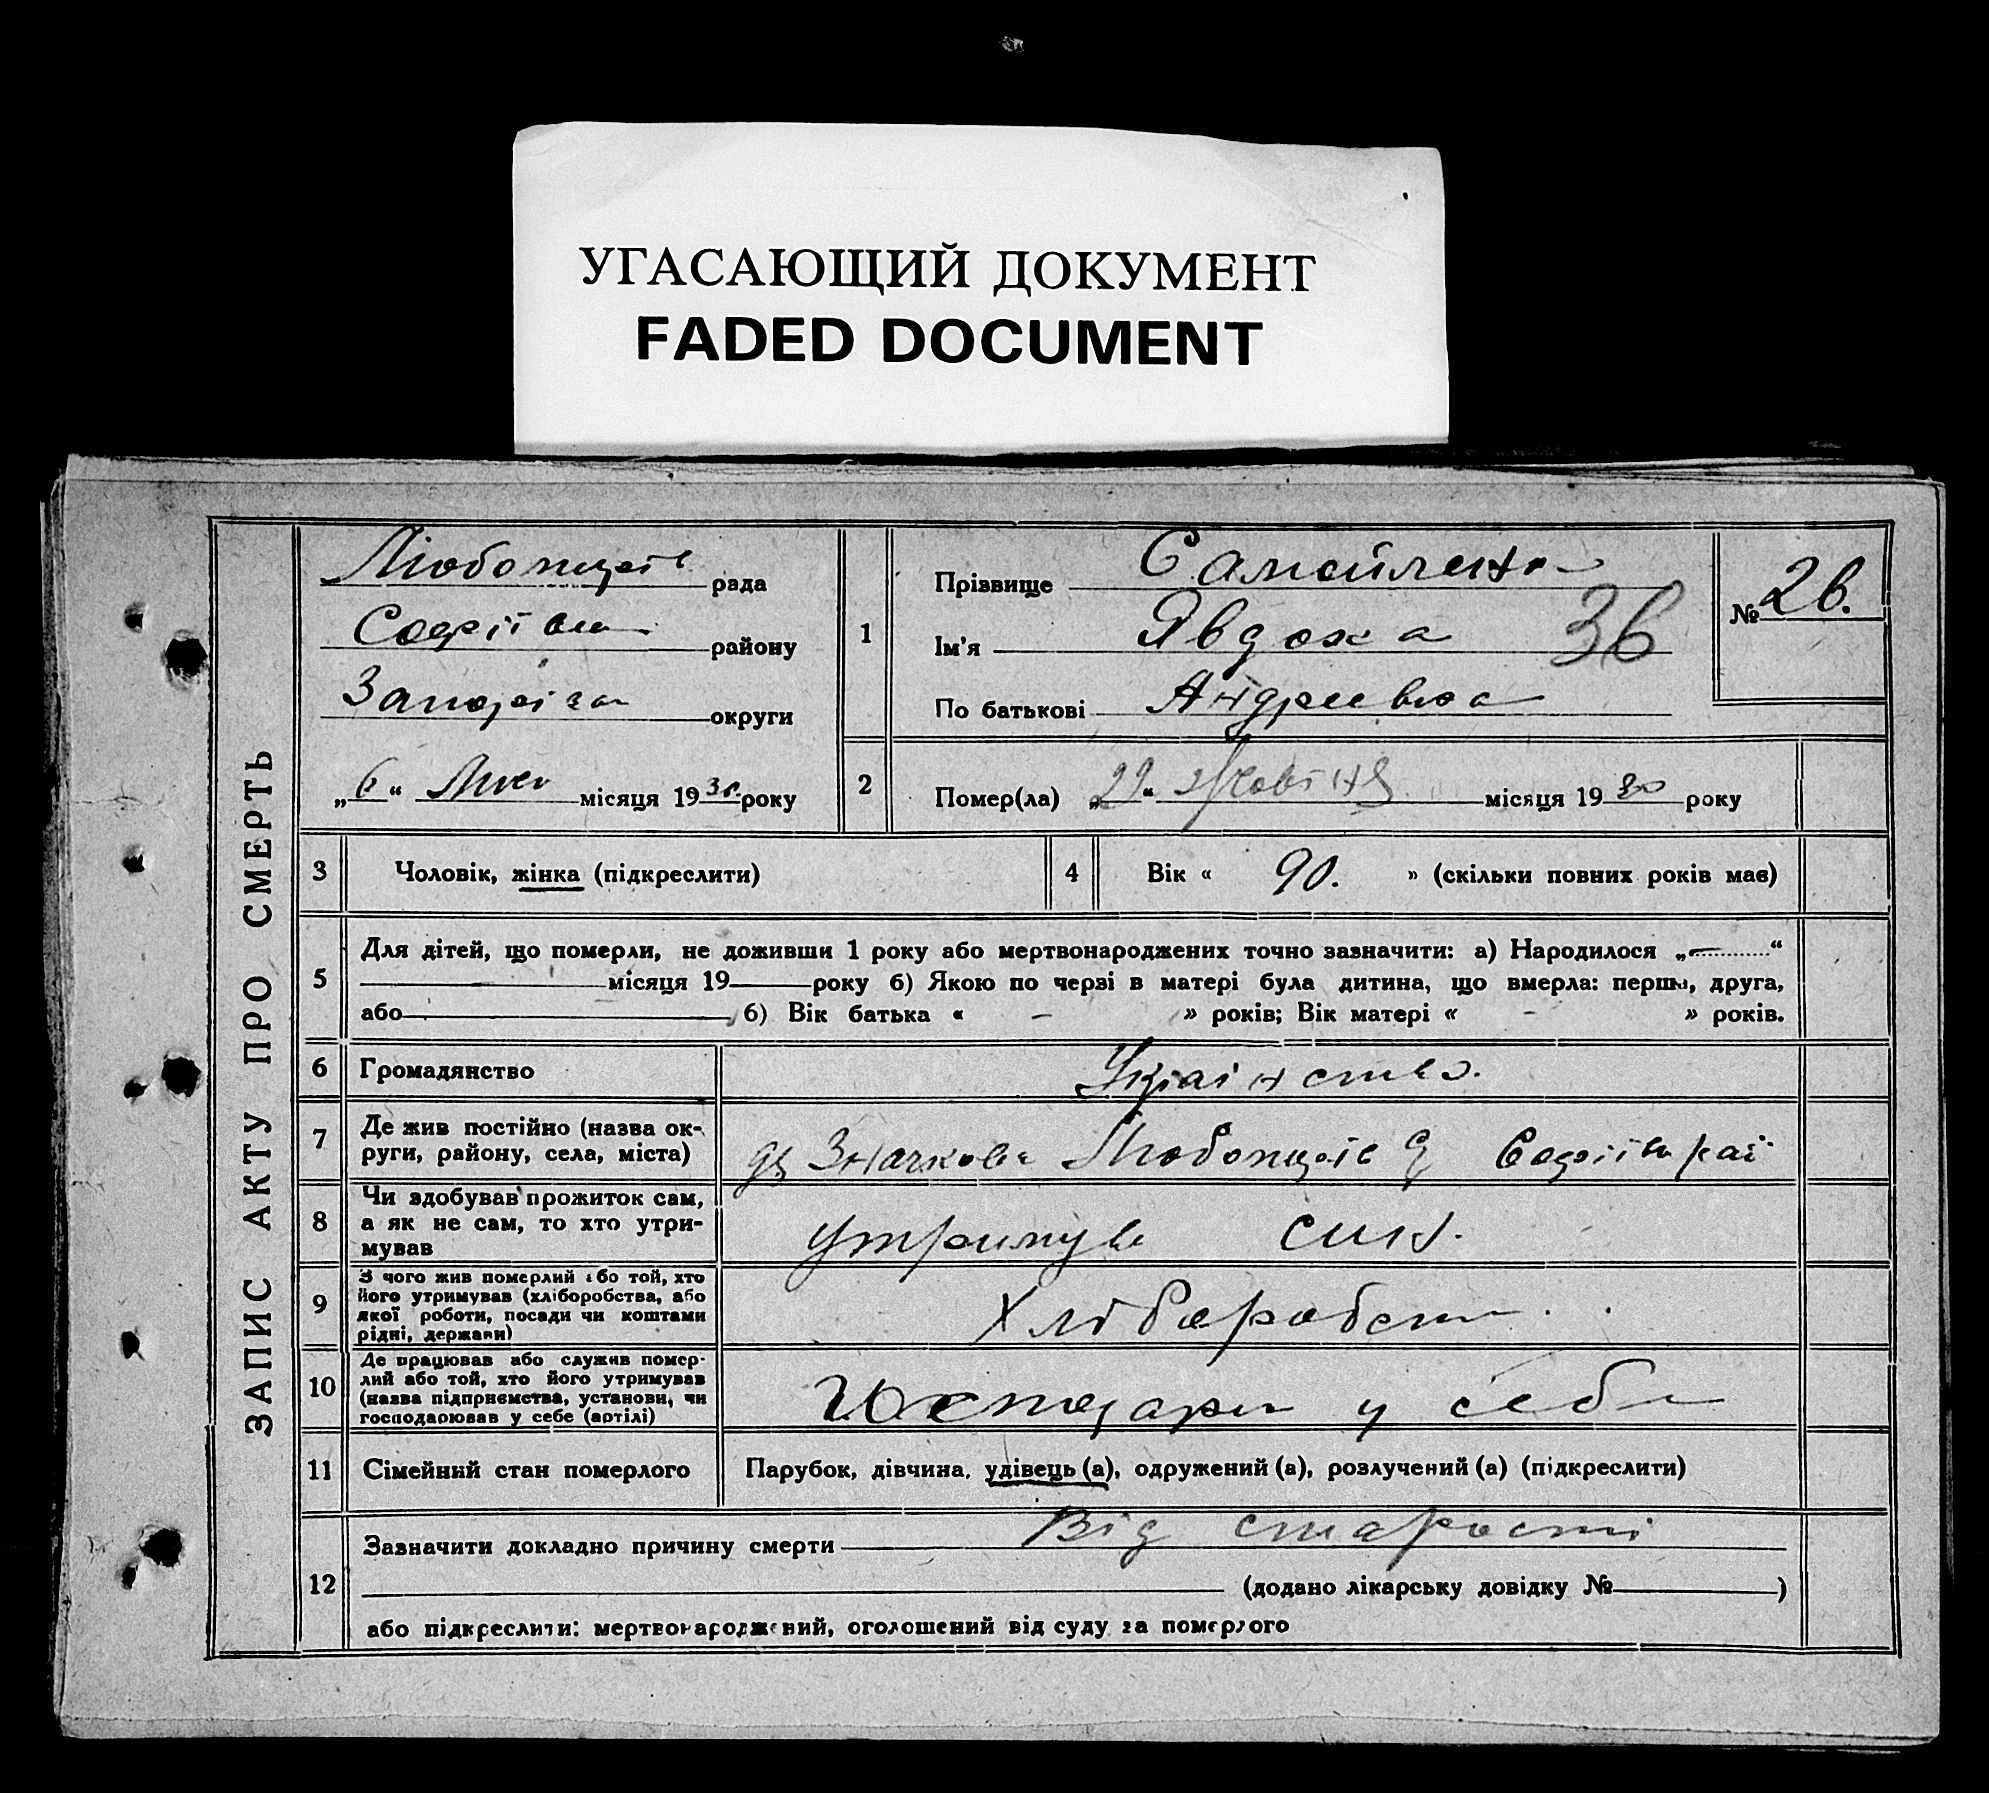 УГАСАЮЩИЙ ДОКУМЕНТ
FADED DOCUMENT
ЗАПИС АКТУ ПРО СМЕРТЬ
рада
району
округи
„6“ місяця 1930 року
1
Прізвище Самойленко
Ім'я Явдоха 36
По батькові Андреевна
№ 26.
2
Помер(ла) „29“ Жовтня місяця 1930 року
3 Чоловік, жінка (підкреслити)
4 Вік « 90. » (скільки повних років має)
5 Для дітей, що померли, не доживши 1 року або мертвонароджених точно зазначити: а) Народилося „—“
місяця 19 року б) Якою по черзі в матері була дитина, що вмерла: перша, друга,
або б) Вік батька « – » років; Вік матері « – » років.
6 Громадянство
7 Де жив постійно (назва ок-
руги, району, села, міста)
8 Чи здобував прожиток сам,
а як не сам, то хто утри-
мував
утримував син.
9 З чого жив померлий або той, хто
його утримував (хліборобства, або
якої роботи, посади чи коштами
рідні, держави)
10 Де працював або служив помер-
лий або той, хто його утримував
(назва підприємства, установи, чи
господарював у себе (артілі)
у себе
11 Сімейний стан померлого Парубок, дівчина, удівець (а), одружений (а), розлучений (а) (підкреслити)
12 Зазначити докладно причину смерти Від старости
(додано лікарську довідку № )
або підкреслити: мертвонароджений, оголошений від суду за померлого